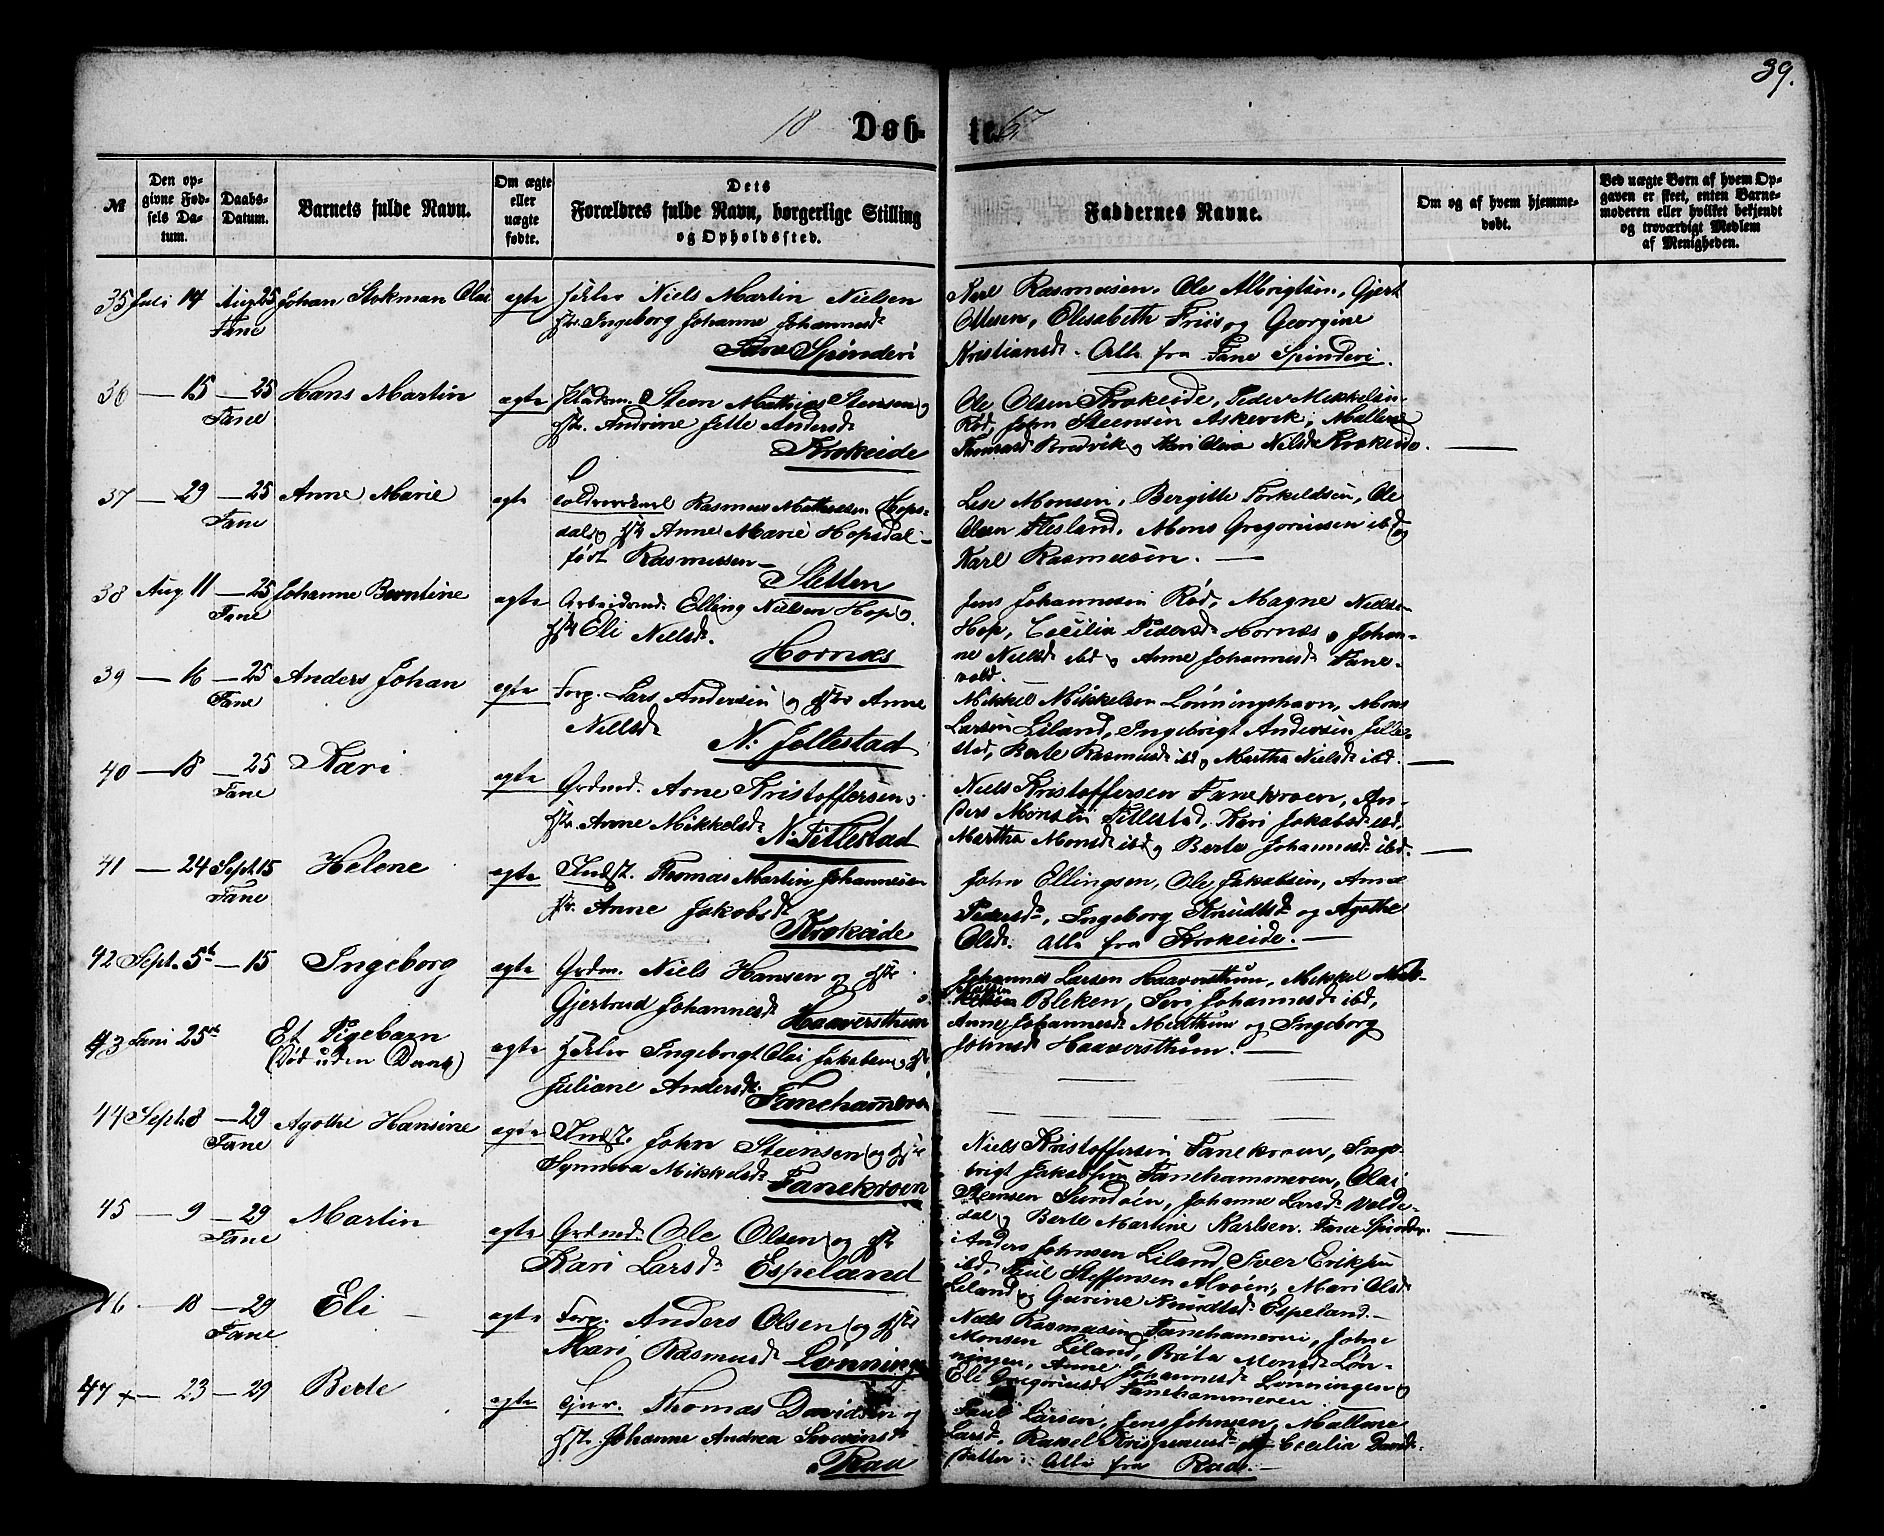 39.
18 Døb- te. 67
№
Den opgivne Fødsels Datum.
Daabs-Datum.
Barnets fulde Navn.
Om ægte eller uægte fødte.
Dets Forældres fulde Navn, borgerlige Stilling og Opholdssted.
Faddernes Navne.
Om og af hvem hjemmedøbt.
Ved uægte Børn af hvem Opgaven er skeet, enten Barnemoderen eller hvilket bekjendt og troværdigt Medlem af Menigheden.
35 Juli 14 Aug 25 Fane Johan Stokman Olai ægte
Niels Martin Nielsen
Ingeborg Johanne Johannesdr
Fane Spinderi
Karl Rasmussen, Ole Albrigtsen, Gjert
Olsen, Elisabeth Friis og Georgine
Kristiansdr. Alle fra Fane Spinderi.
36 — 15 — 25 Fane Hans Martin ægte
Steen Mathias Steensen og
Hstr. Andrine Jette Andersdr
Krokeide
Ole Olsen Krokeide, Peder Mikkelsen
Rød, John Steensen Askevik, Mallene
Bredvik og Kari Olava Nilsdr Krokeide.
37 — 29 — 25 Fane Anne Marie ægte
Rasmus Mathiesen Hops-
dal og Hstr Anne Marie Hopsdal
født Rasmussen
Sletten
Lise Monsen, Bergitte Torkeldsen, Ole
Olsen Flesland, Mons Gregoriussen ibd og
Karl Rasmussen. —
38 Aug 11 — 25 Fane Johanne Berntine ægte
Arbeidsmd. Elling Nielsen Hop og
Hstr Eli Nielsdr.
Hornæs
Jens Johannesen Rød, Magne Nielsen
Hop, Cecilia Pedersdr Hornæs og Johan-
ne Nielsdr ibd og Anne Johannesdr Fane-
vold.
39 — 16 — 25 Fane Anders Johan ægte
Forp. Lars Andersen og Hstr Anne
Nielsdr
N: Jellestad
Mikkel Mikkelsen Lønningshavn, Mons
Larsen Liland, Ingebrigt Andersen Jelle-
stad, Berte Rasmusdr ibd og Martha Nielsdr ibd.
40 — 18 — 25 Fane Kari ægte
Grdmd. Arne Kristoffersen og
Hstr. Anne Mikkelsdr
N: Titlestad
Niels Kristoffersen Fanekroen, An-
ders Monsen Titlestad, Kari Jakobsdr ibd,
Martha Monsdr ibd og Berte Johannesdr ibd.
41 — 24 Sept. 15 Fane Helene ægte
Indst. Thomas Martin Johannesen
Hstr. Anne Jakobsdr
Krokeide
John Ellingsen, Ole Jakobsen, Anne
Pedersdr, Ingeborg Knudtsdr og Agathe
Olsdr. Alle fra Krokeide. —
42 Sept. 5te — 15 Ingeborg ægte
Grdm. Niels Hansen og Hstr
Gjertrud Johannesdr
Haaversthum
Johannes Larsen Haaversthum, Mikkel
Bleken, Siri Johannesdr ibd,
Anne Johannesdr Midthun og Ingeborg
Johnsdr Haaversthum. —
43 Juni 25de Et Pigebarn (død uden Daab) ægte
Ingebrigt Olai Jakobsen og Hstr
Juliane Andersdr.
Fanehammeren
44 Sept. 8 — 29 Fane Agathe Hansine ægte
Indst. John Steinsen og Hstr
Synneva Mikkelsdr
Fanekroen
Niels Kristoffersen Fanekroen, Inge-
brigt Jakobsen Fanehammeren, Olai
Steensen Sundøen, Johanne Larsdr Valde-
dal og Berte Martine Karlsen. Fane Spinder-
i
45 — 9 — 29 Fane Martin ægte
Grdmd. Ole Olsen og Hstr
Kari Larsdr Espeland
Anders Johnsen Liland, Iver Eriksen
ibd, Paul Steffensen Alvøen, Mari Olsdr
Liland og Gurine Knudtsdr Espeland. —
46 — 18 — 29 Fane Eli — ægte
Forp. Anders Olsen og Hstr
Mari Rasmusdr Lønningen
Rasmussen Fanehammeren, John
Monsen Liland, Brita Monsdr Løn-
ningen, Anne Johannesdr Lønningen og
Eli Gregoriusdr Fanehammeren.
47 × — 23 — 29 Berte ægte
Thomas Davidsen og
Hstr. Johanne Andrea
Rau
Paul Larsen, Jens Johnsen, Mallene
Larsdr, Rakel og Cecilia Davids-
datter. Alle fra Rade. —